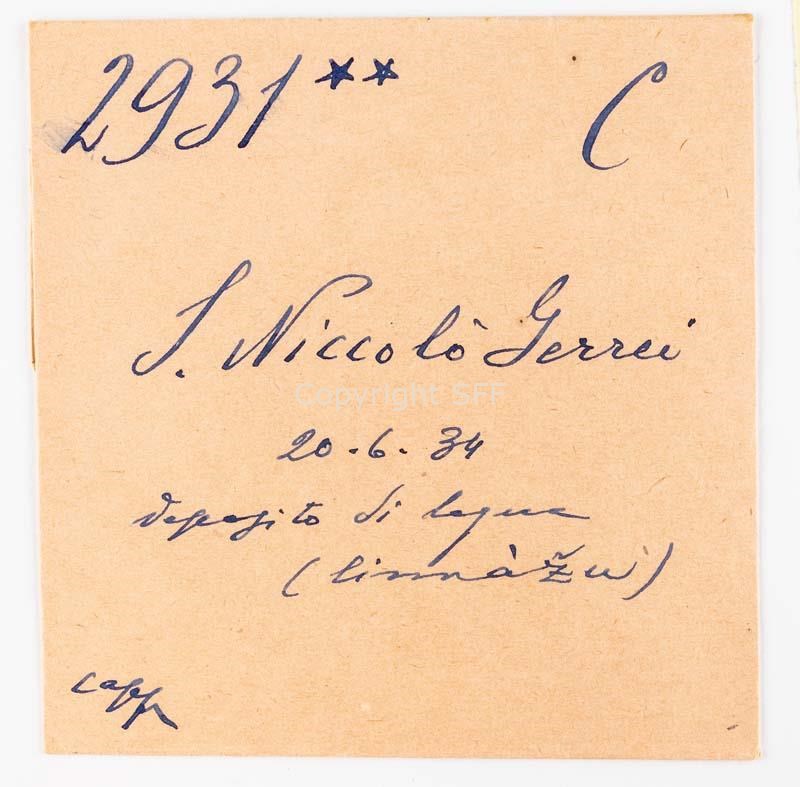 2931 ** C
S. Niccolò Gerrei
Copyright SFF
20.6.34
deposito di legna
(linnàžu)
capp